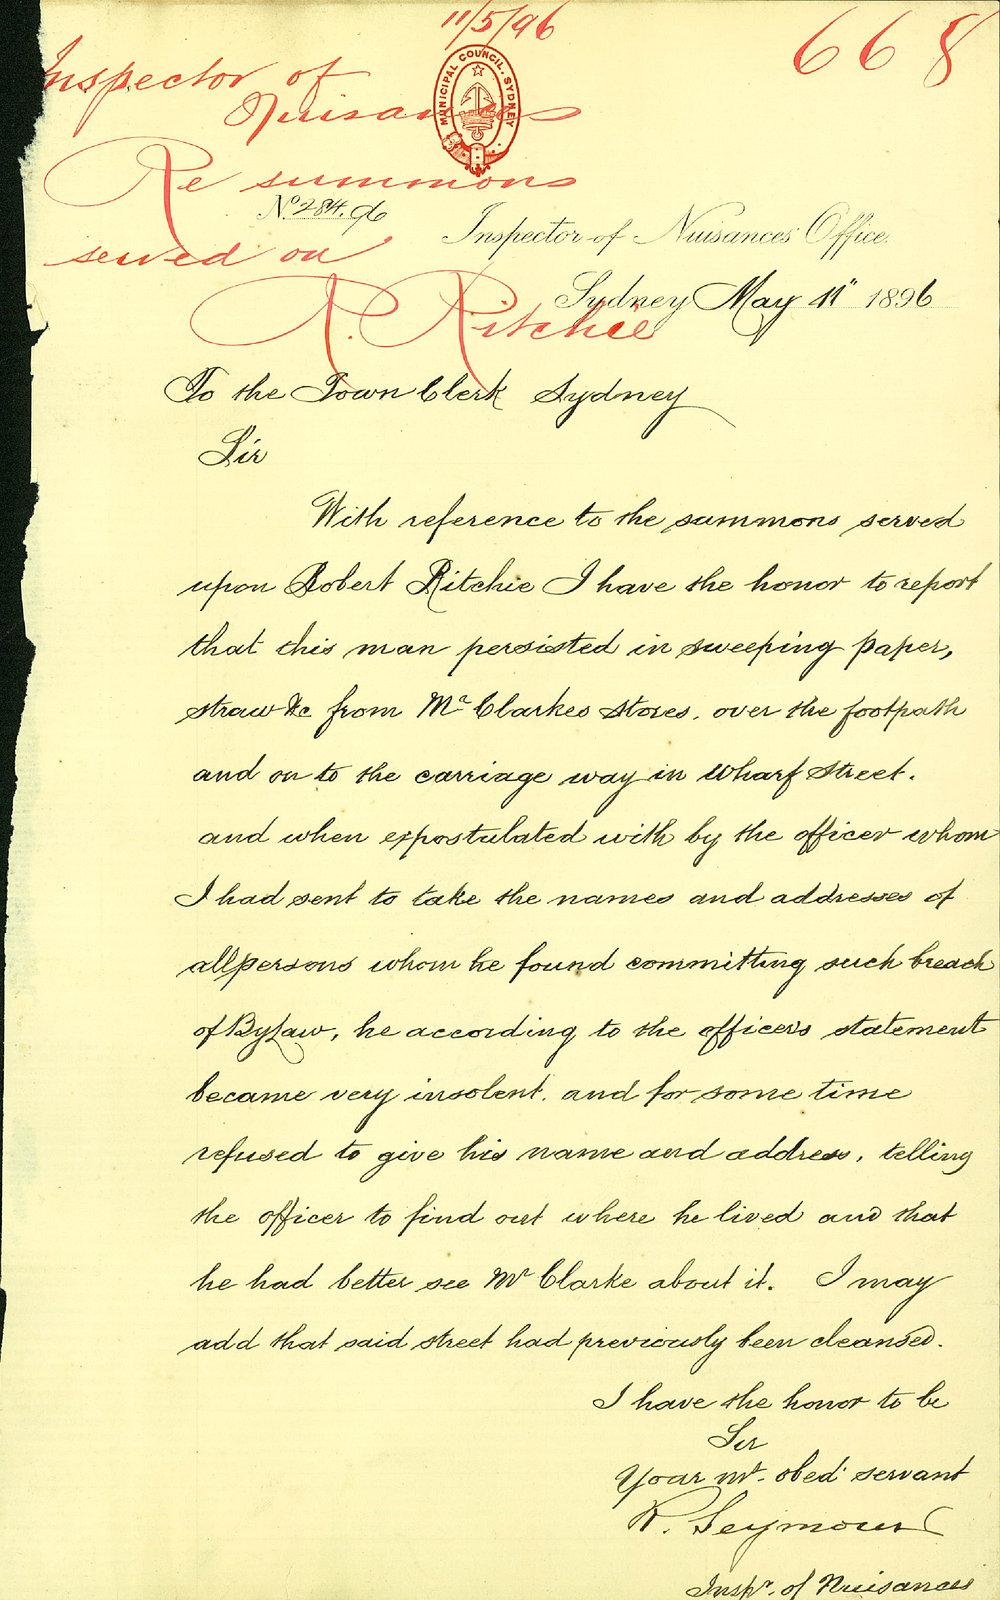 11/5/96
668
Inspector of
Nuisances
MUNICIPAL COUNCIL. SYDNEY
Re summons
No. 284.96
Inspector of Nuisances' Office.
served on
Sydney May 11" 1896
R. Ritchie
To the Town Clerk Sydney
Sir
With reference to the summons served
upon Robert Ritchie I have the honor to report
that this man persisted in sweeping paper,
straw &c from Mr Clarkes Stores. over the footpath
and on to the carriage way in Wharf Street.
and when expostulated with by the officer whom
I had sent to take the names and addresses of
all persons whom he found committing such breach
of By Law, he according to the officers statement
became very insolent. and for some time
refused to give his name and address, telling
the officer to find out where he lived and that
he had better see Mr Clarke about it. I may
add that said street had previously been cleansed.
I have the honor to be
Sir
Your mt. obed' servant
R. Seymour
Inspr. of Nuisances